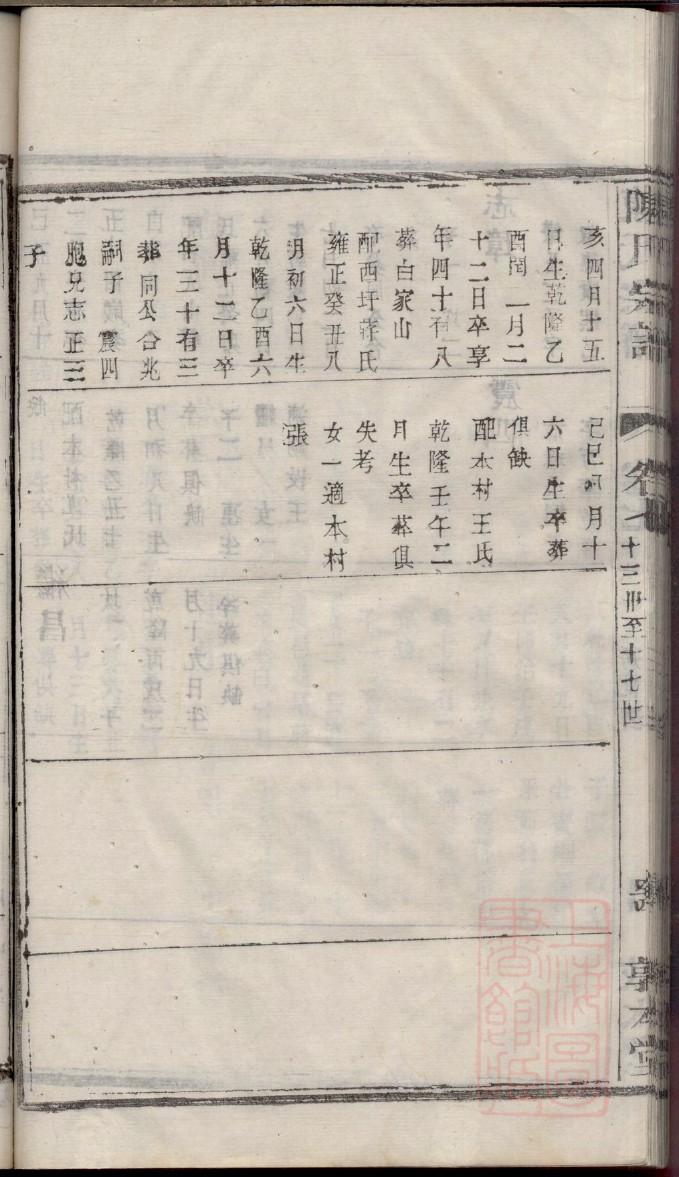 陳氏宗譜
卷七
十三卅至十七世
敦本堂
亥四月十五
日生乾隆乙
酉閏一月二
十二日卒享
年四十有八
葬白家山
配西圩蔣氏
雍正癸丑八
月初六日生
乾隆乙酉六
月十二日卒
年三十有三
葬同公合兆
嗣子震四
胞兄志正三
子
己巳四月十
六日生卒葬
俱缺
配本村王氏
乾隆壬午二
月生卒葬俱
失考
女一適本村
張